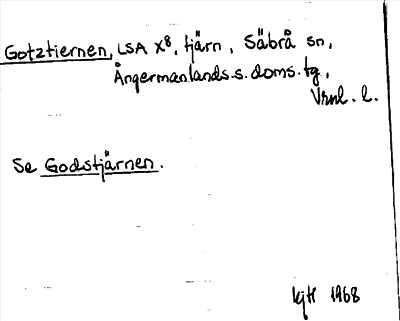 Gotztiernen, LSA X8, tjärn, Säbrå sn,
Ångermanlands.s.doms.tg,
Vrnl. l.
Se Godstjärnen.
1968